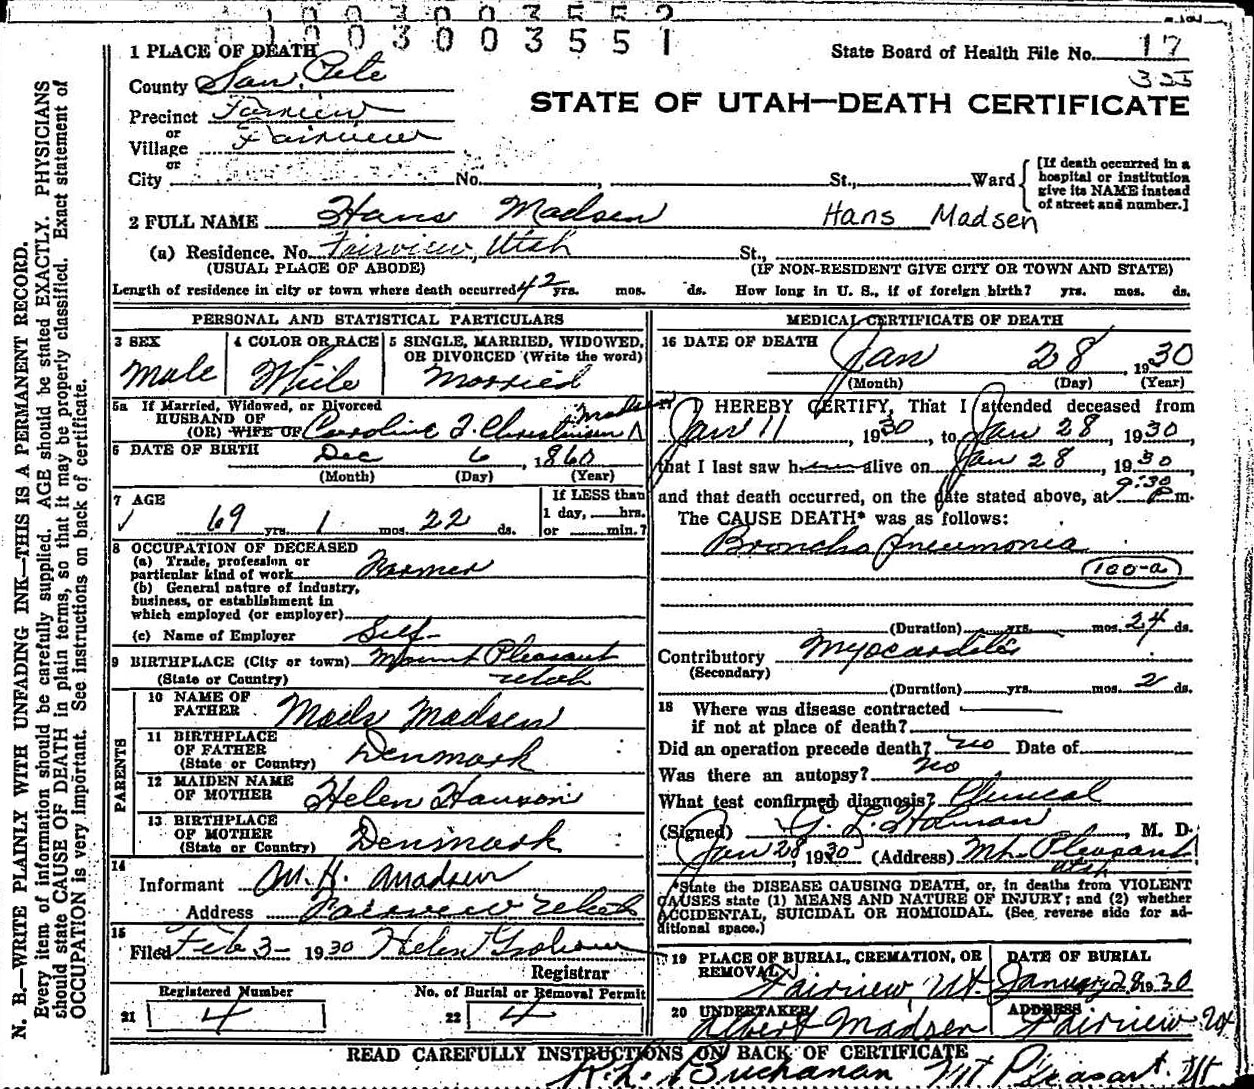 1 0 0 3 0 0 3 5 5 1
1 PLACE OF DEATH
State Board of Health File No. 17
335
County San Pete
STATE OF UTAH—DEATH CERTIFICATE
Precinct Fairview
or
Village Fairview
or
City No. , St., Ward
[If death occurred in a hospital or institution give its NAME instead of street and number.]
2 FULL NAME Hans Madsen Hans Madsen
(a) Residence. No. Fairview, Utah St.,
(USUAL PLACE OF ABODE) (IF NON-RESIDENT GIVE CITY OR TOWN AND STATE)
Length of residence in city or town where death occurred 42 yrs. mos. ds. How long in U. S., if of foreign birth? yrs. mos. ds.
PERSONAL AND STATISTICAL PARTICULARS
3 SEX
Male
4 COLOR OR RACE
White
5 SINGLE, MARRIED, WIDOWED,
OR DIVORCED (Write the word)
Married
5a If Married, Widowed, or Divorced
HUSBAND OF
(OR) WIFE OF Caroline Christensen Madsen
6 DATE OF BIRTH Dec 6, 1860
(Month) (Day) (Year)
7 AGE
69 yrs. 1 mos. 22 ds.
If LESS than
1 day, hrs.
or min.?
8 OCCUPATION OF DECEASED
(a) Trade, profession or
particular kind of work Farmer
(b) General nature of industry,
business, or establishment in
which employed (or employer)
(c) Name of Employer Self
9 BIRTHPLACE (City or town) Mount Pleasant
(State or Country) Utah
PARENTS
10 NAME OF
FATHER Mads Madsen
11 BIRTHPLACE
OF FATHER
(State or Country) Denmark
12 MAIDEN NAME
OF MOTHER Helen Hanson
13 BIRTHPLACE
OF MOTHER
(State or Country) Denmark
14
Informant M. H. Madsen
Address Fairview Utah
15
Filed Feb 3- 1930 Helen
Registrar
Registered Number No. of Burial or Removal Permit
21 4 22 4
MEDICAL CERTIFICATE OF DEATH
16 DATE OF DEATH Jan 28 1930
(Month) (Day) (Year)
17 I HEREBY CERTIFY, That I attended deceased from
Jan 11, 1930, to Jan 28, 1930,
that I last saw h alive on Jan 28, 1930,
and that death occurred, on the date stated above, at 9:30 P m.
The CAUSE DEATH* was as follows:
Broncho pneumonia
100-a
(Duration) yrs. mos. 24 ds.
Contributory Myocarditis
(Secondary)
(Duration) yrs. mos. 2 ds.
18 Where was disease contracted
if not at place of death?
Did an operation precede death? no Date of
Was there an autopsy? no
What test confirmed diagnosis? Clinical
(Signed) G. L. Holman, M. D.
Jan 28, 1930 (Address) Mt. Pleasant
Utah
*State the DISEASE CAUSING DEATH, or, in deaths from VIOLENT
CAUSES state (1) MEANS AND NATURE OF INJURY; and (2) whether
ACCIDENTAL, SUICIDAL OR HOMICIDAL. (See reverse side for ad-
ditional space.)
19 PLACE OF BURIAL, CREMATION, OR
REMOVAL
Fairview, Ut.
DATE OF BURIAL
January 28 1930
20 UNDERTAKER
Albert Madsen
ADDRESS
Fairview Ut
READ CAREFULLY INSTRUCTIONS ON BACK OF CERTIFICATE
Buchanan Mt Pleasant. Ut
N. B.—WRITE PLAINLY WITH UNFADING INK—THIS IS A PERMANENT RECORD.
Every item of information should be carefully supplied. AGE should be stated EXACTLY. PHYSICIANS
should state CAUSE OF DEATH in plain terms, so that it may be properly classified. Exact statement of
OCCUPATION is very important. See instructions on back of certificate.